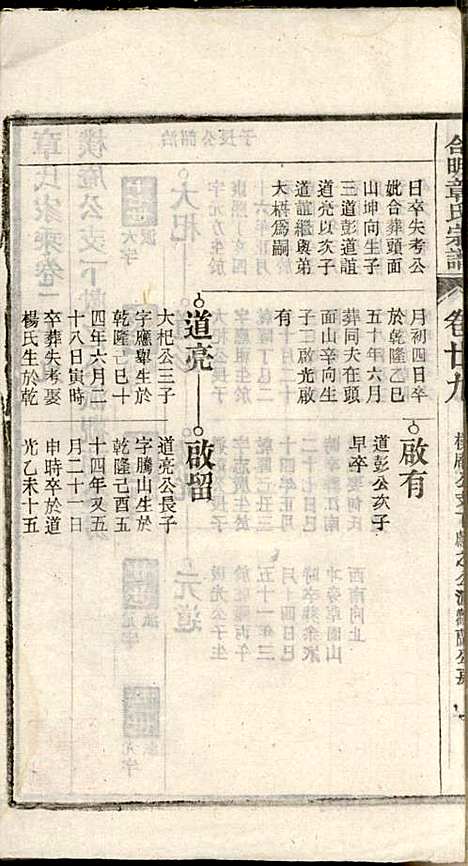 合明章氏宗譜
卷廿九
日卒失考公
妣合葬頭面
山坤向生子
三道彭道誼
道亮公以亥子
道誼繼與弟
大梧爲嗣
月初四日卒
於乾隆乙巳
五十年六月
葬同夫在頭
面山辛向生
子二啟光啟
有
啟有
道彭公亥子
早卒
道亮
大杞公三子
字應舉生於
乾隆己巳十
四年六月二
十八日寅時
卒葬失考娶
楊氏生於乾
啟留
道亮公長子
字騰山生於
乾隆己酉五
十四年又五
月二十一日
申時卒於道
光乙未十五